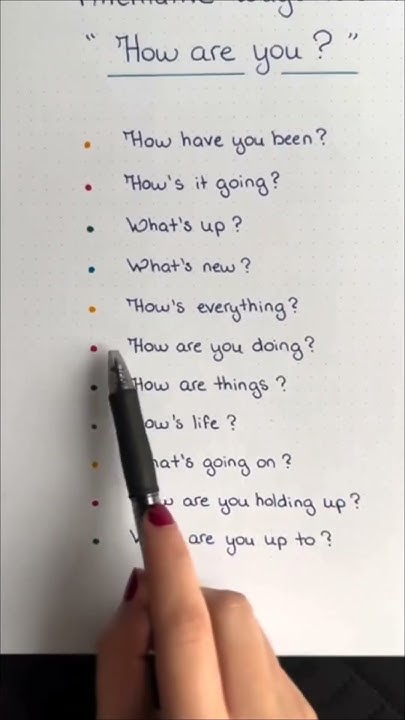 " How are you ? "
How have you been?
How's it going?
What's up ?
What's new ?
How's everything?
How are you doing?
How are things ?
ow's life ?
hat's going on ?
are you holding up ?
are you up to ?